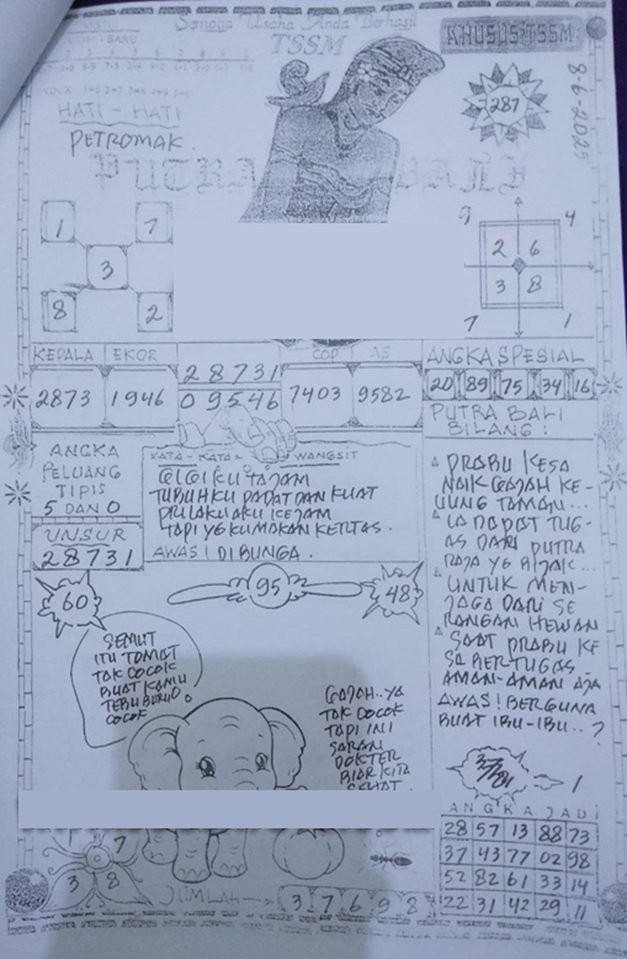 Semoga Usaha Anda Berhasil
TSSM
KHUSUS TSSM
287
8-6-2025
HATI - HATI
PETROMAK
PUTRA BALI
1 7
3
8 2
9 4
2 6
3 8
7 1
KEPALA EKOR COP AS
2873 1946
28731
09546
7403 9582
ANGKA SPESIAL
20 89 75 34 16
PUTRA BALI
BILANG :
ANGKA
PELUANG
TIPIS
5 DAN 0
UNSUR
28731
KATA - KATA WANGSIT
GIGIKU TAJAM
TUBUHKU PADAT DAN KUAT
PRILAKU AKU KEJAM
TAPI YG KUMAKAN KERTAS.
AWAS! DIBUNGA.
PRABU KESA
NAIK GAJAH KE-
UUNG TAMAN...
IA DAPAT TUG-
AS DARI PUTRA
RAJA YG BIJAK...
UNTUK MEN-
JAGA DARI SE
RANGAN HEWAN
SAAT PRABU KE
SA BERTUGAS
AMAN-AMAN AJA
AWAS! BERGUNA
BUAT IBU-IBU..?
60
95
48
SEMUT
ITU TOMAT
TAK COCOK
BUAT KAMU
TEBU BARU
COCOK
GAJAH..YA
TAK COCOK
TAPI INI
SARAN
DOKTER
BIAR KITA
SEHAT.
1
ANGKA JADI
28 57 13 88 73
37 43 77 02 98
52 82 61 33 14
22 31 42 29 11
7
3 8
JUMLAH
3 7 6 9 8